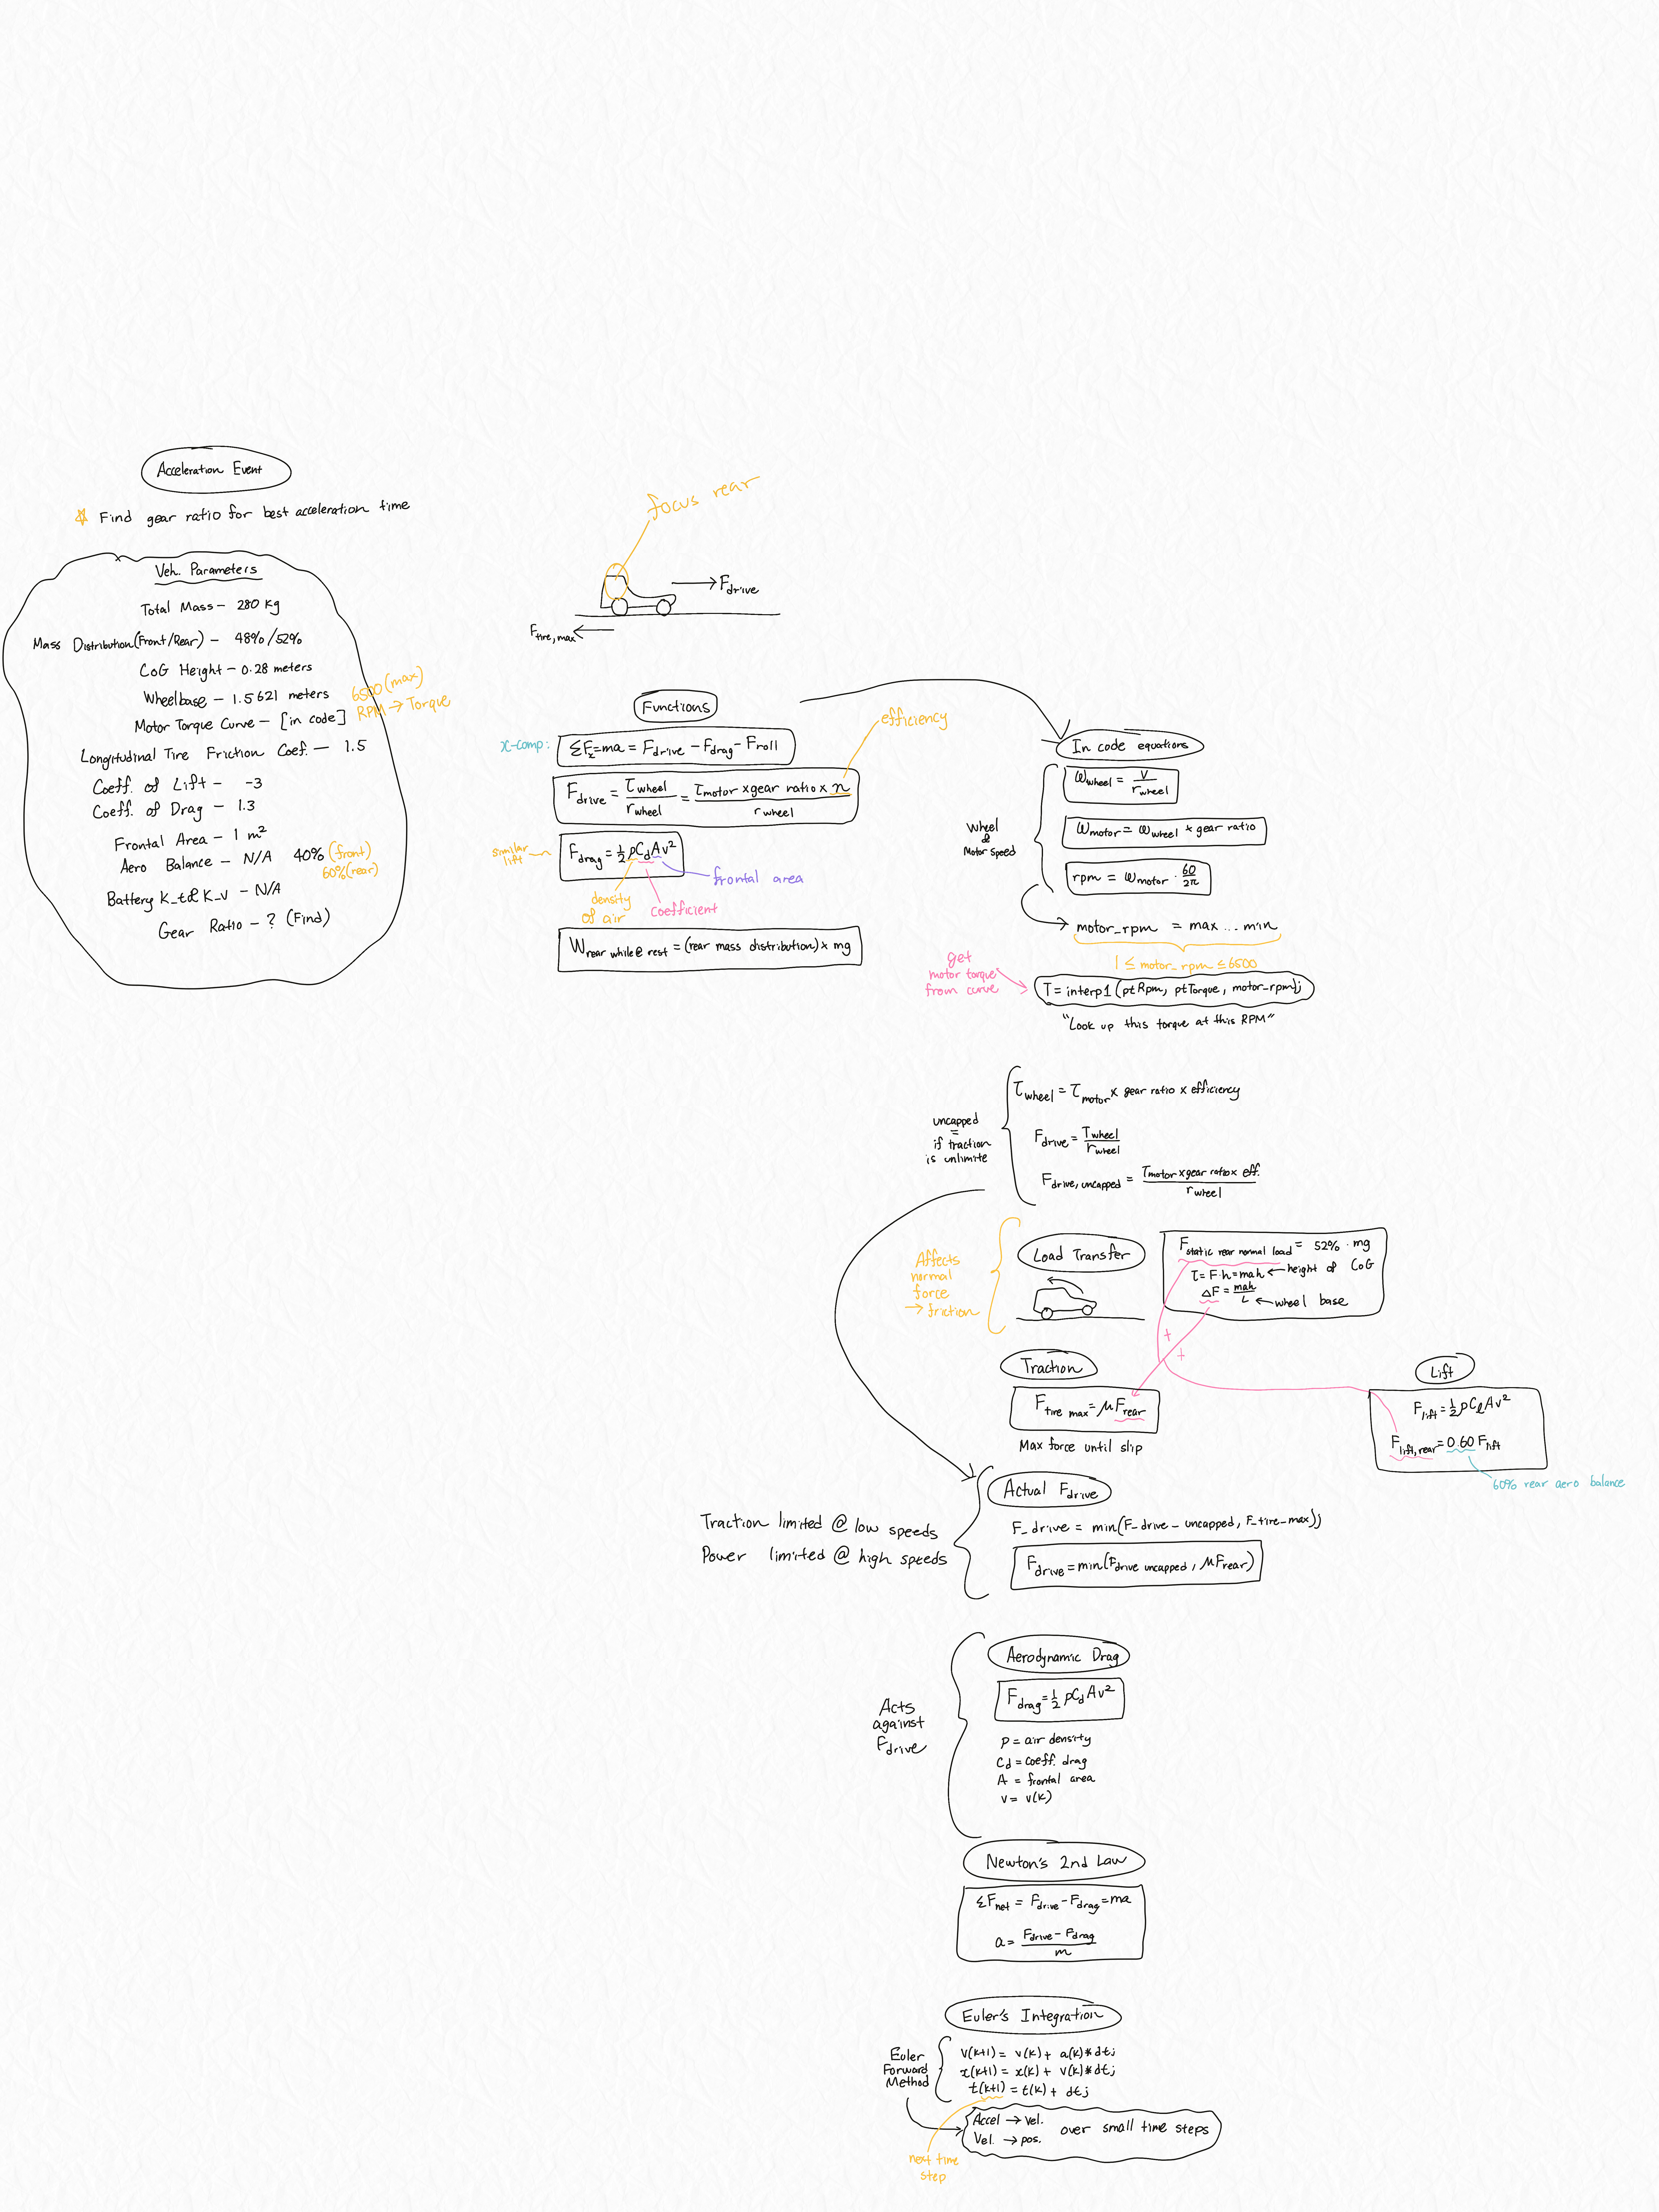 Acceleration Event
Find gear ratio for best acceleration time
Veh. Parameters
Total Mass - 280 kg
Mass Distribution (Front/Rear) - 48%/52%
CoG Height - 0.28 meters
Wheelbase - 1.5621 meters
Motor Torque Curve - [in code]
6500 (max)
RPM → Torque
Longitudinal Tire Friction Coef. - 1.5
Coeff. of Lift - -3
Coeff. of Drag - 1.3
Frontal Area - 1 m²
Aero Balance - N/A 40% (front)
60% (rear)
Battery K_t & K_v - N/A
Gear Ratio - ? (Find)
focus rear
F_drive
F_tire,max
Functions
x-comp: ΣF_x = ma = F_drive - F_drag - F_roll
efficiency
F_drive = τ_wheel / r_wheel = τ_motor x gear ratio x n / r_wheel
similar lift
F_drag = ½ρC_dAv²
frontal area
density of air
coefficient
W_rear while @ rest = (rear mass distribution) x mg
In code equations
Wheel & Motor speed
ω_wheel = v / r_wheel
ω_motor = ω_wheel * gear ratio
rpm = ω_motor · 60/2π
motor_rpm = max ... min
1 ≤ motor_rpm ≤ 6500
get
motor torque
from curve
T = interp1 (ptRpm, ptTorque, motor_rpm);
"Look up this torque at this RPM"
uncapped
=
if traction
is unlimite
τ_wheel = τ_motor x gear ratio x efficiency
F_drive = τ_wheel / r_wheel
F_drive, uncapped = τ_motor x gear ratio x eff. / r_wheel
Affects
normal
force
→ friction
Load Transfer
F_static rear normal load = 52% · mg
τ = F·h = mah ← height of CoG
ΔF = mah / L ← wheel base
+
+
Traction
F_tire max = μF_rear
Max force until slip
Lift
F_lift = ½ρC_lAv²
F_lift,rear = 0.60 F_lift
60% rear aero balance
Actual F_drive
Traction limited @ low speeds
Power limited @ high speeds
F_drive = min(F_drive_uncapped, F_tire_max));
F_drive = min(F_drive uncapped, μF_rear)
Aerodynamic Drag
Acts
against
F_drive
F_drag = ½ρC_dAv²
ρ = air density
C_d = coeff. drag
A = frontal area
v = v(k)
Newton's 2nd Law
ΣF_net = F_drive - F_drag = ma
a = F_drive - F_drag / m
Euler's Integration
Euler
Forward
Method
v(k+1) = v(k) + a(k)*dt;
x(k+1) = x(k) + v(k)*dt;
t(k+1) = t(k) + dt;
Accel → vel.
Vel. → pos. over small time steps
next time
step